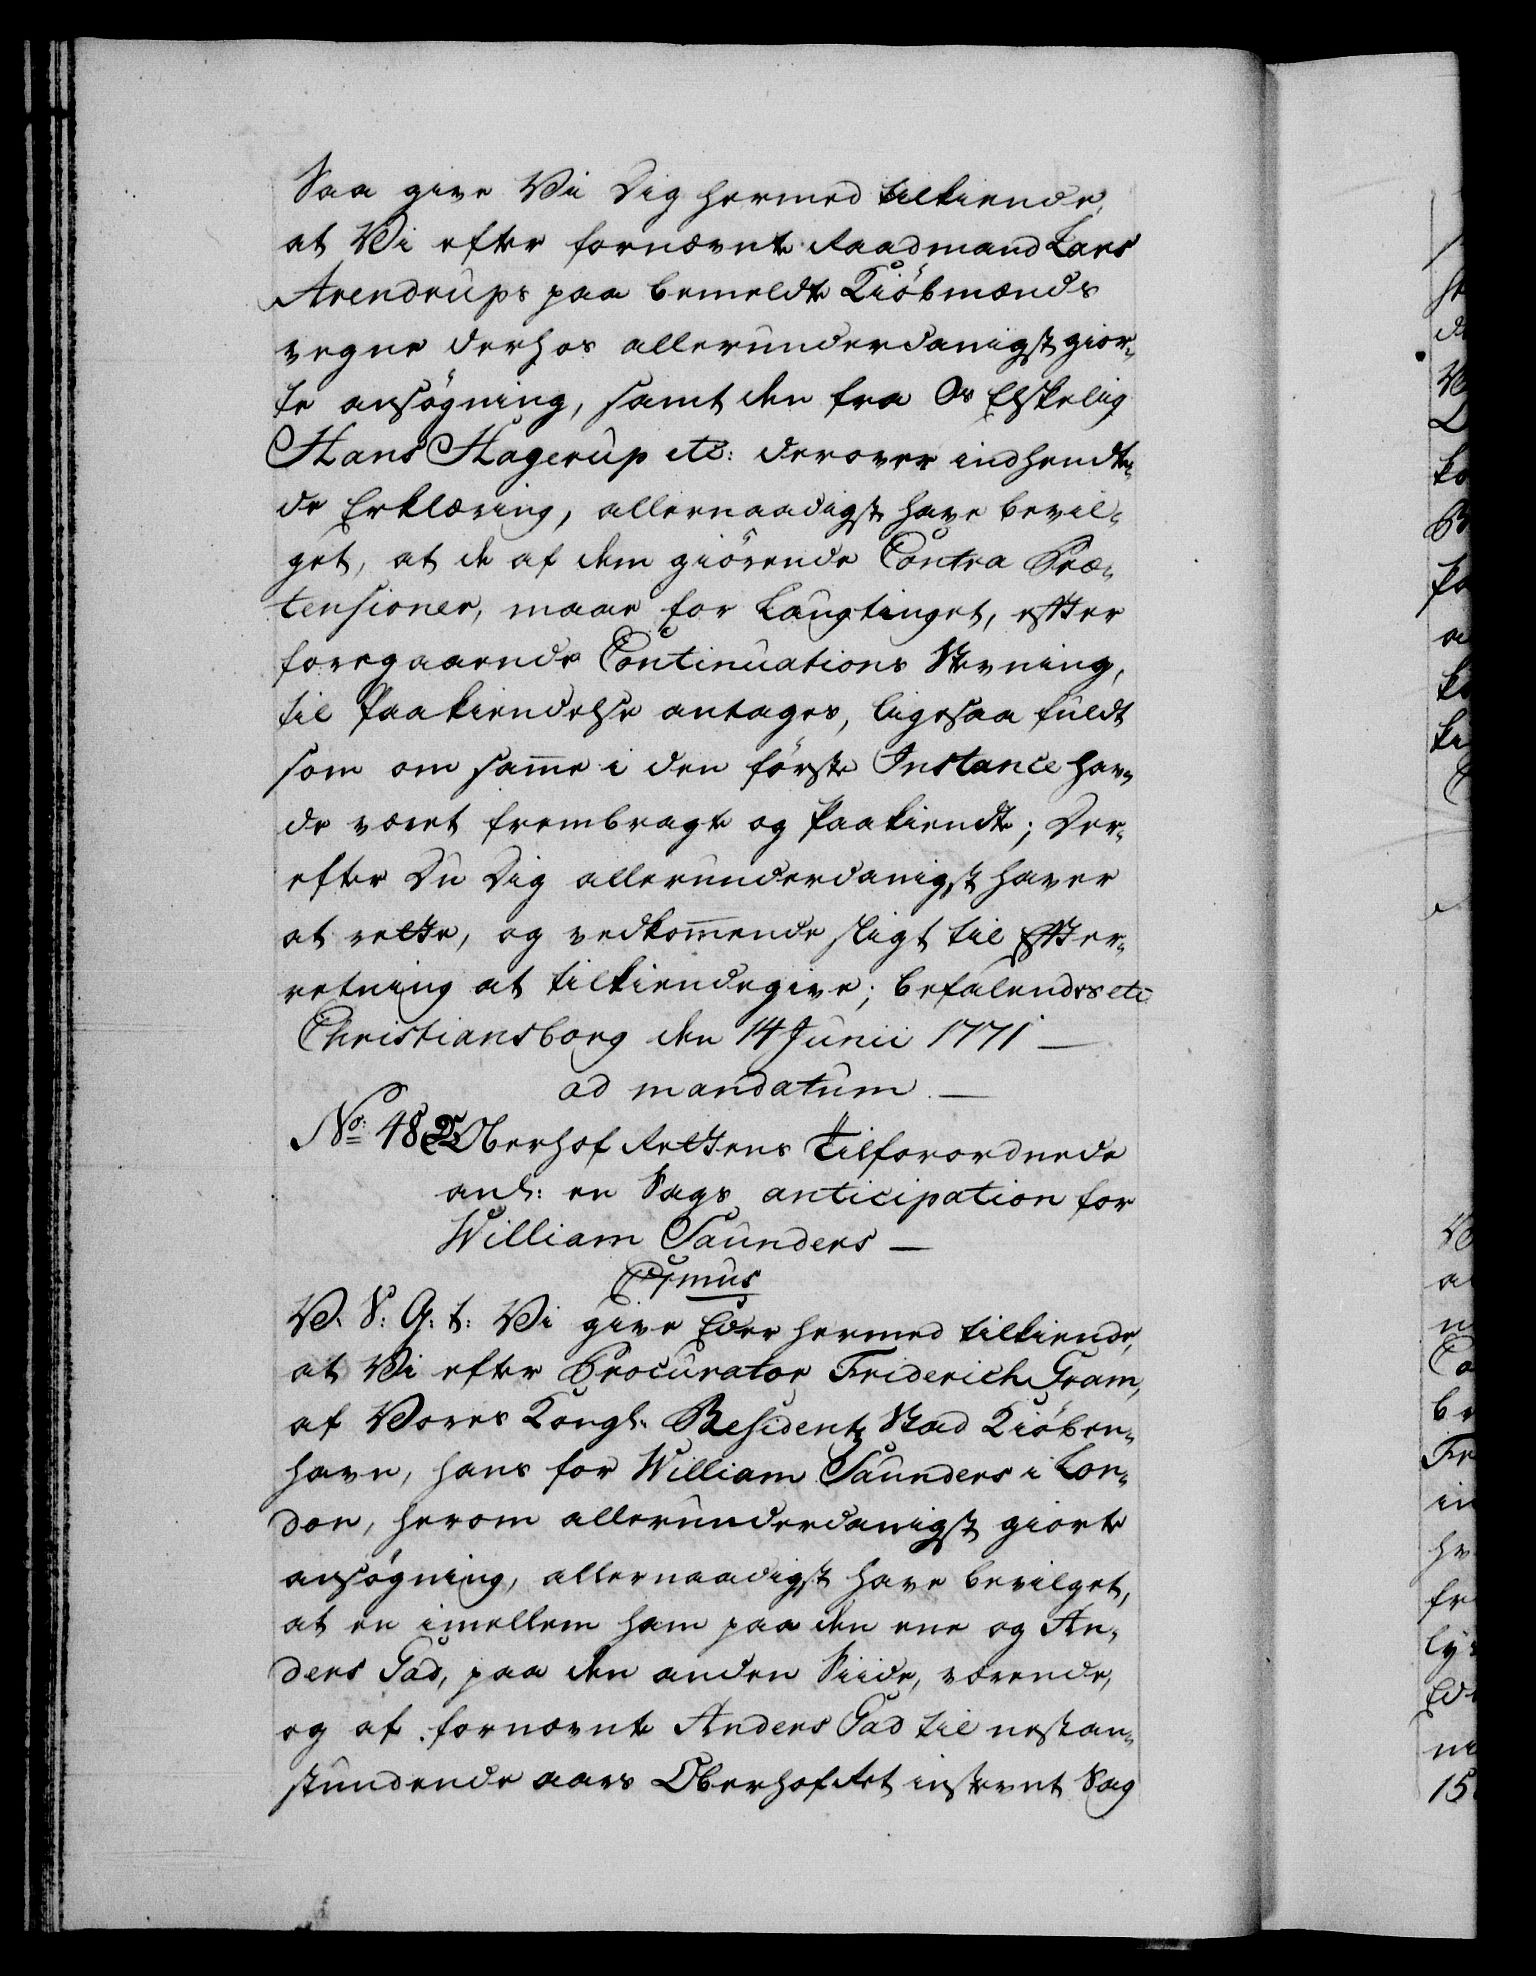 Saa give Vi Dig hermed tilkiende,
at Vi efter fornævnte Raadmand Lars
Arendrups paa bemeldte Kiöbmænds
vegne derhos allerunderdanigst gior„
te ansøgning, samt den fra Os Elskelig
Hans Hagerup etc: derover indhendte„
de Erklæring, allernaadigst have bevil„
get, at de af dem giörende Contra Præ„
tensioner, maae for Laugtinget, efter
foregaaende Continuations Stevning,
til Paakiendelse antages, ligesaa fuldt
som om samme i den förste Instance hav„
de været frembragt og paakiendt; Der„
efter Du Dig allerunderdanigst haver
at rette, og vedkommende sligt til Efter„
retning at tilkiendegive; Befalendes etc
Christiansborg den 14 Junii 1771 —
ad mandatum. —
No: 48 Oberhof Rettens Tilforordnede
anl: en Sags anticipation for
William Saunders —
C7mus
V. S: G: t: Vi give Eder hermed tilkiende,
at Vi efter Procurator Friderich Gram,
af Vores Kongl: Residentz Stad Kiöben„
havn, hans for William Saunders i Lon„
don, herom allerunderdanigst giorte
ansøgning, allernaadigst have bevilget,
at en imellem ham paa den ene og An„
ders Gad, paa den anden Siide, værende,
og af fornævnte Anders Gad til nestan„
stundende aars Oberhof Ret instevnt Sag